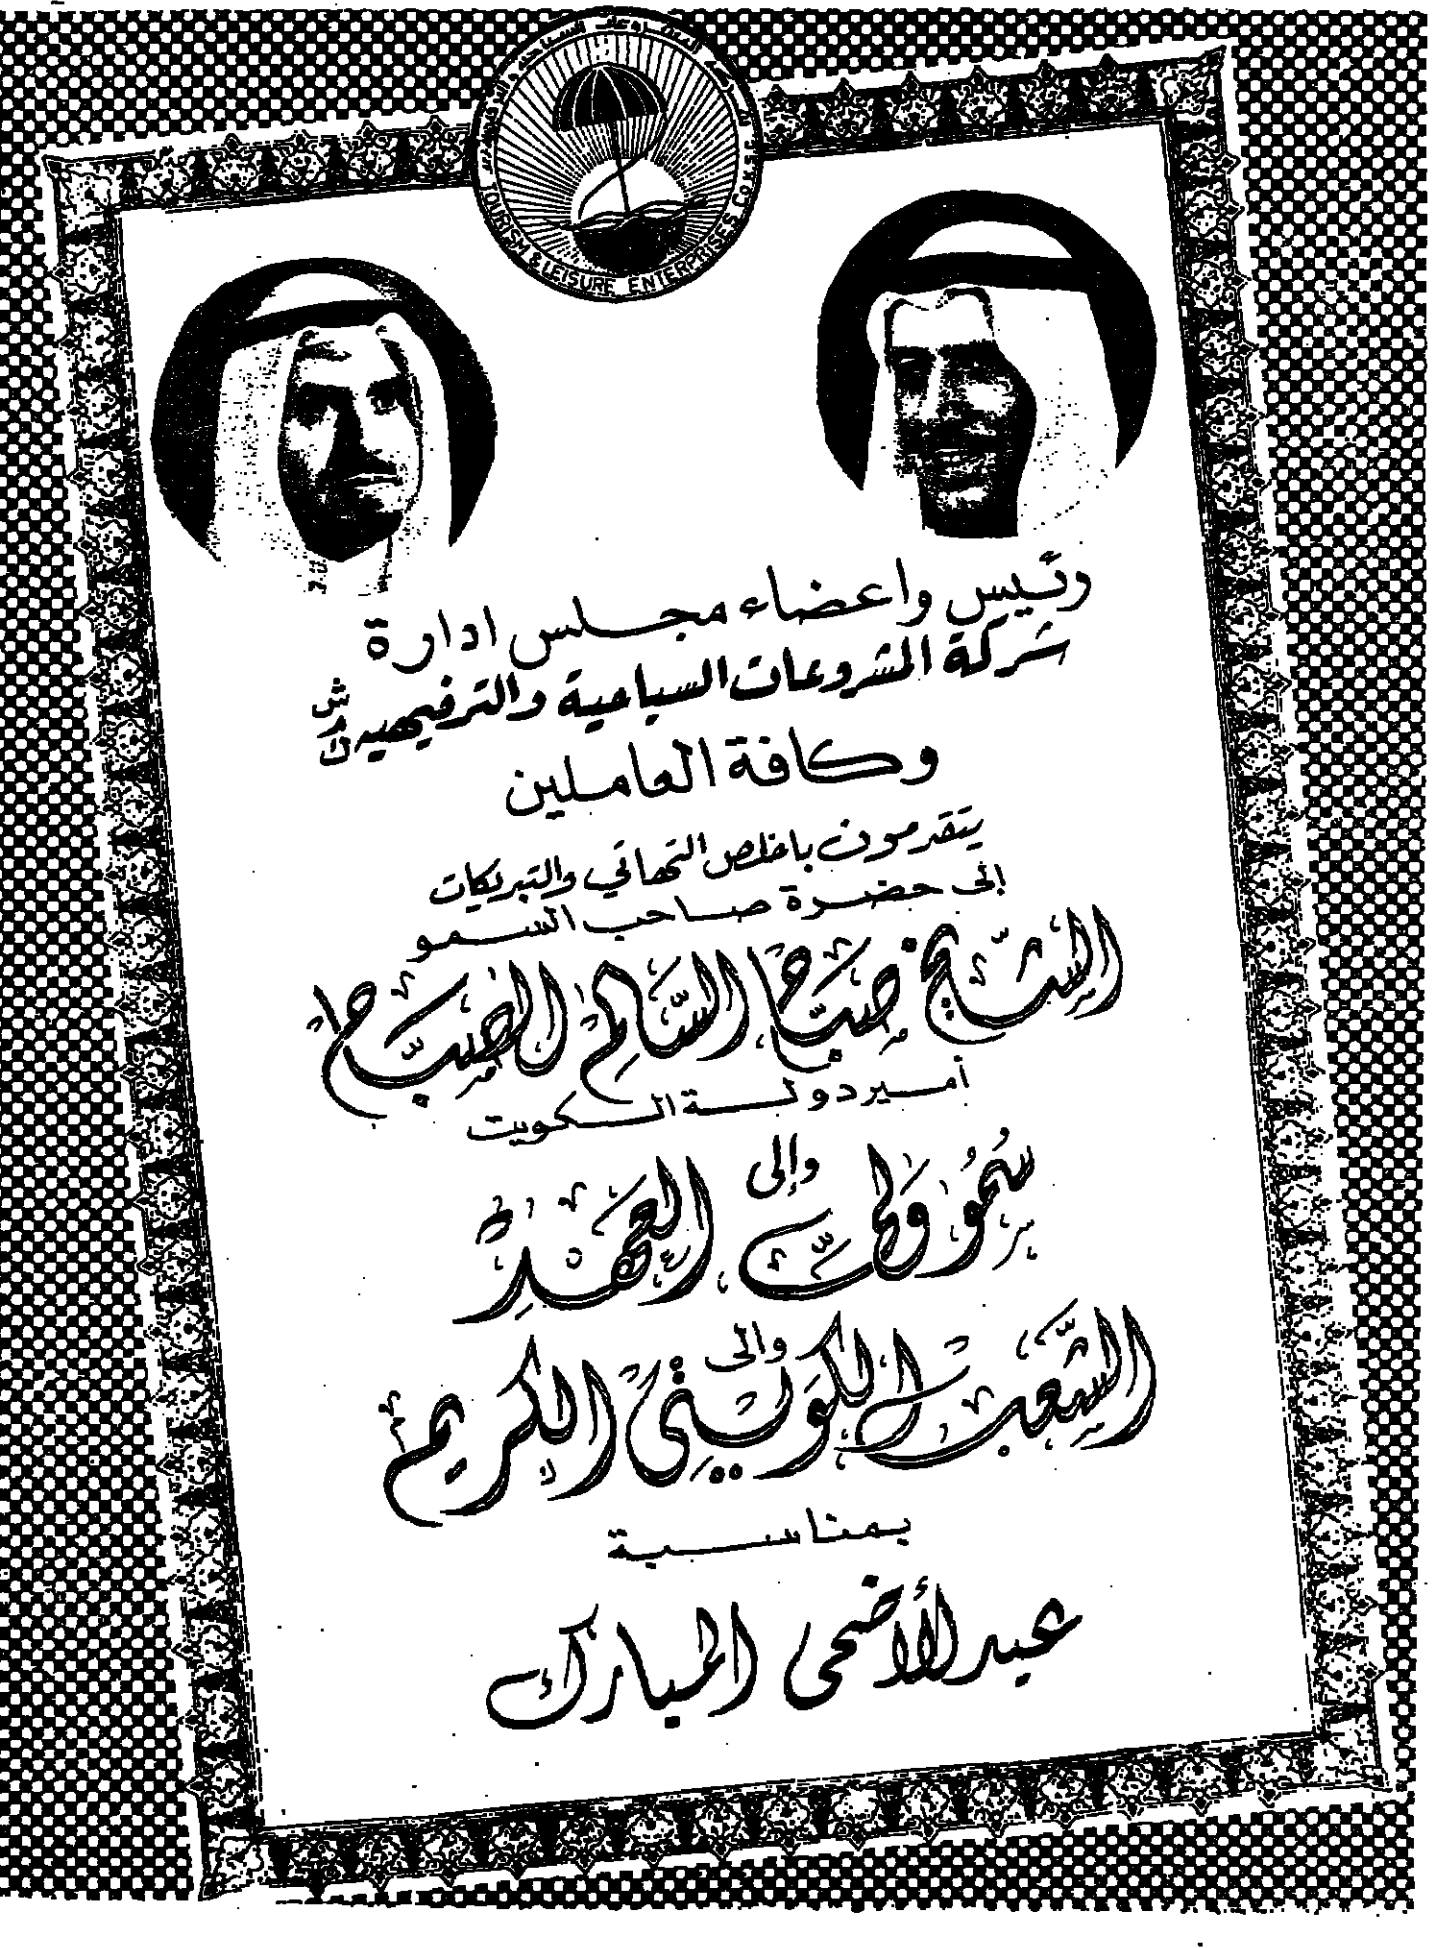 TOURISM & LEISURE ENTERPRISES CO. K.S.C.
رئيس واعضاء مجلس ادارة
شركة المشروعات السياحية والترفيهيه ش م ك
وكافة العاملين
يتقدمون باخلص التهاني والتبريكات
إلى حضرة صاحب السمو
الشيخ صباح السالم الصباح
أمير دولة الكويت
وإلى
سمو ولي العهد
وإلى
الشعب الكويتي الكريم
بمناسبة
عيد الأضحى المبارك